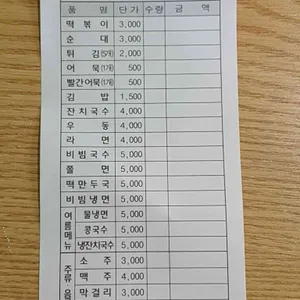 품 명 단가 수량 금 액
떡 볶 이 3,000
순 대 3,000
튀 김(5개) 2,000
어 묵(1개) 500
빨간어묵(1개) 500
김 밥 1,500
잔치국수 4,000
우 동 4,000
라 면 4,000
비빔국수 5,000
쫄 면 5,000
떡만두국 5,000
비빔냉면 5,000
여름메뉴 물냉면 5,000
콩국수 5,000
냉잔치국수 5,000
주류 소 주 3,000
맥 주 4,000
막걸리 3,000